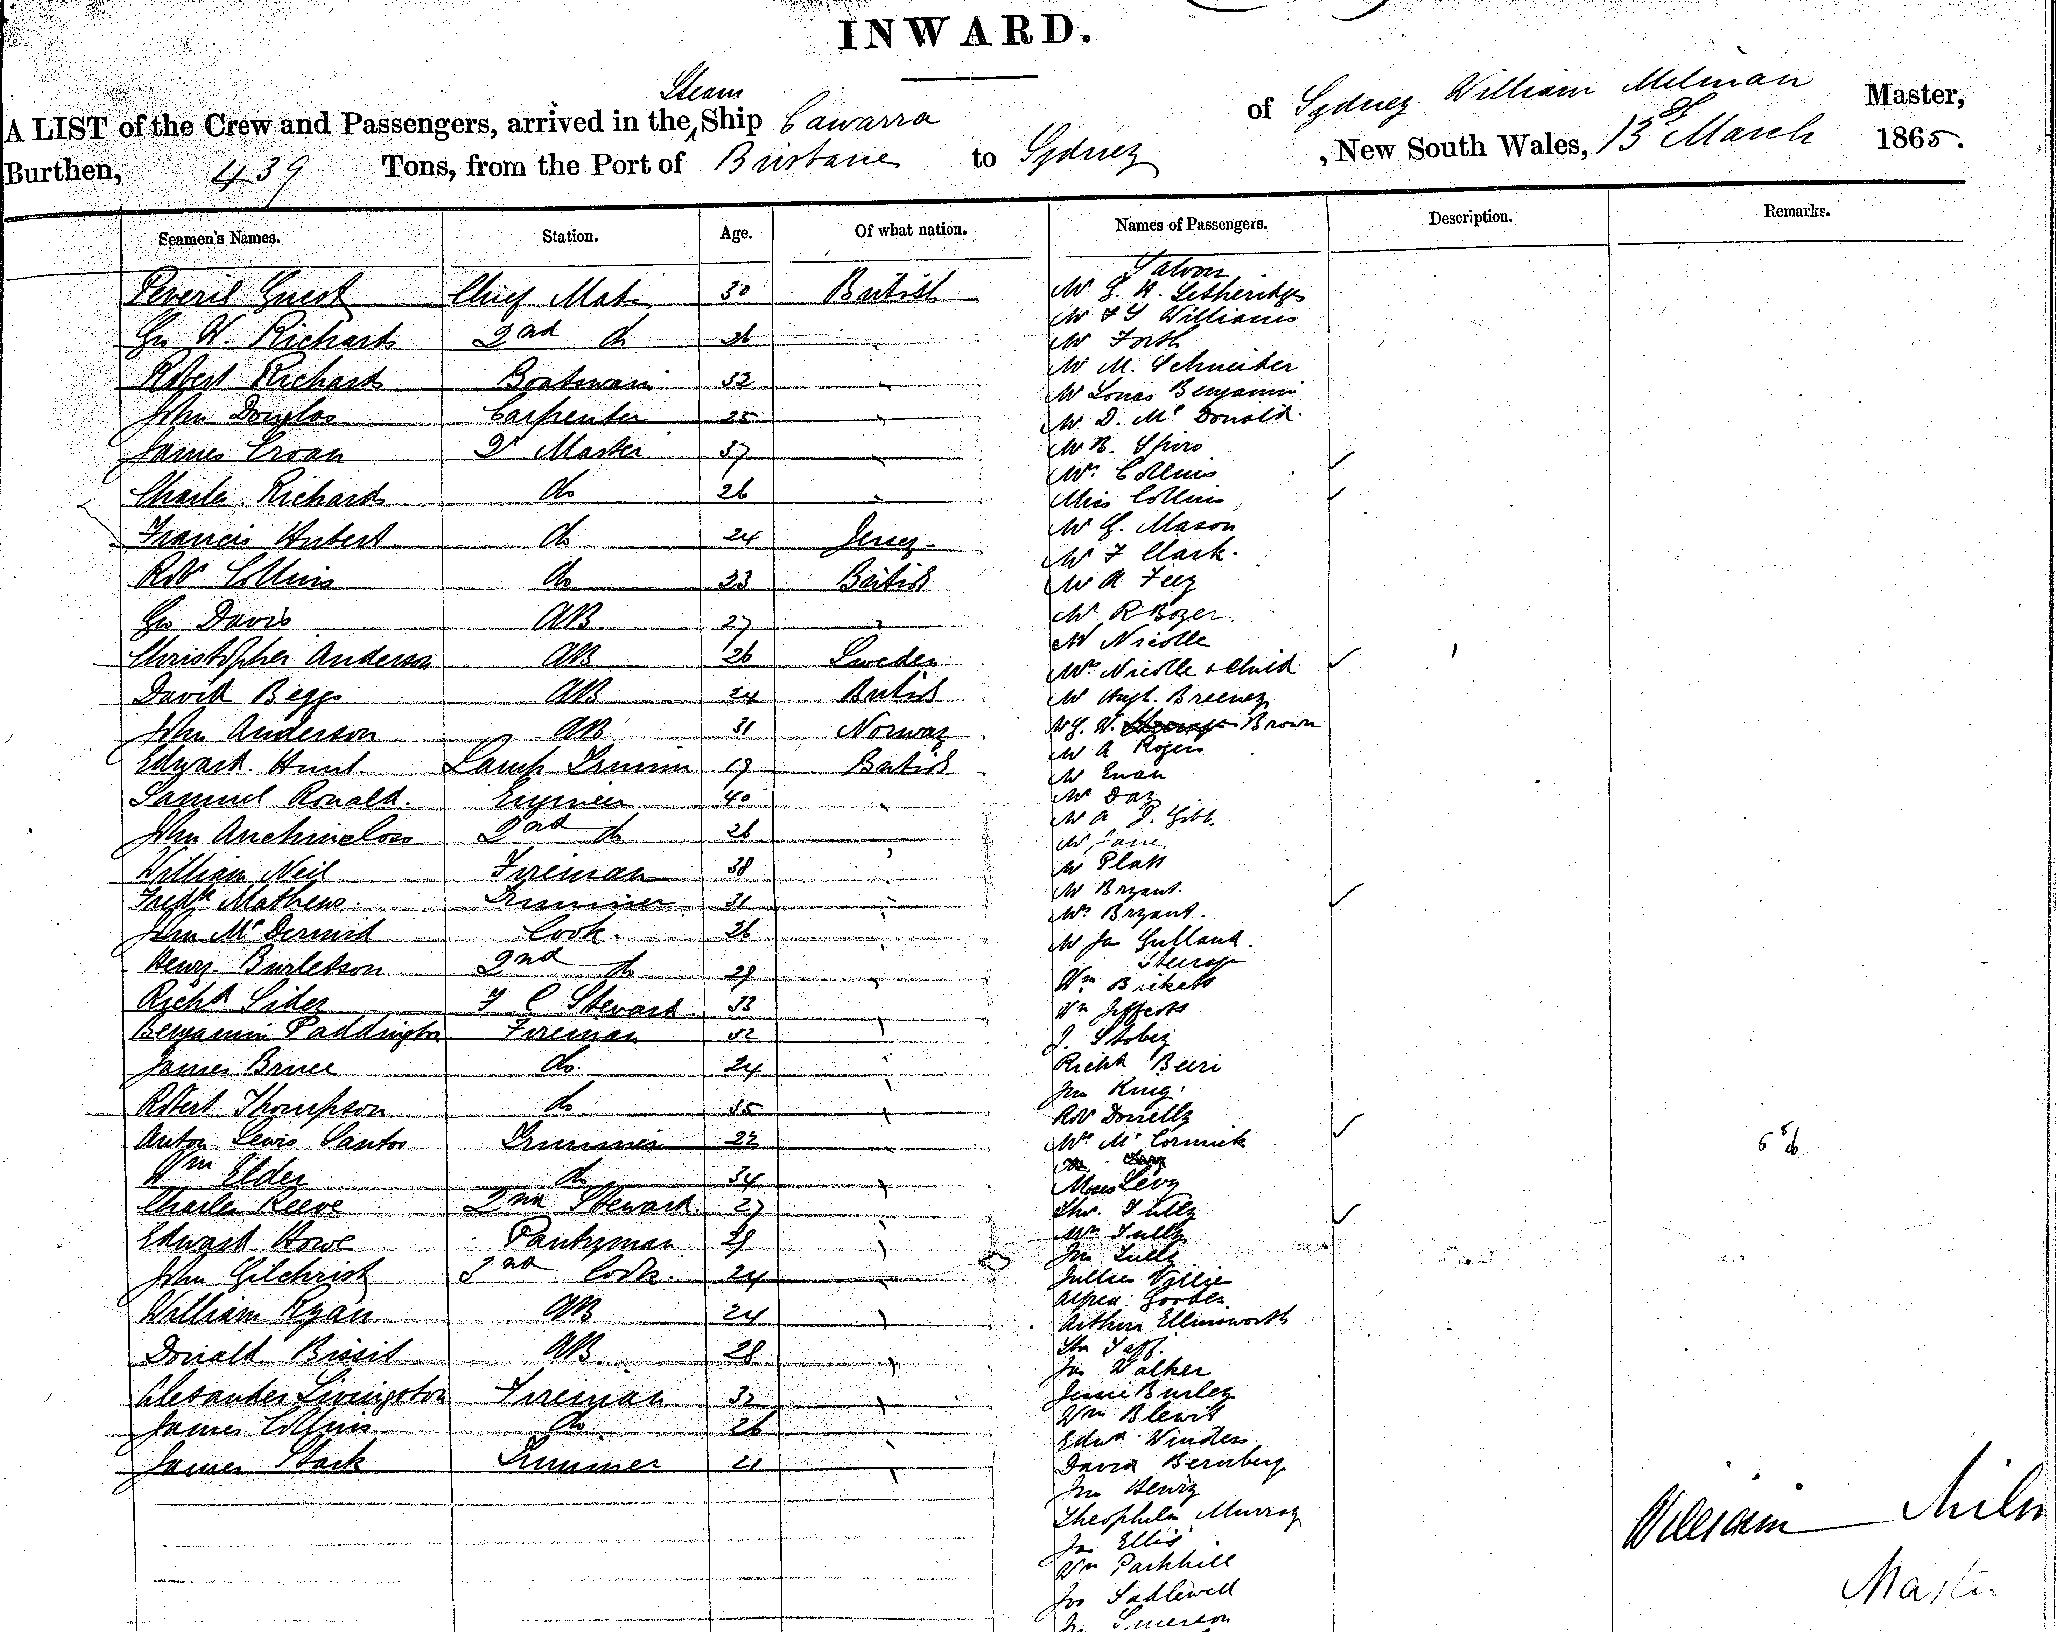 INWARD.
A LIST of the Crew and Passengers, arrived in the Steam Ship Cawarra of Sydney William Milman Master,
Burthen, 439 Tons, from the Port of Brisbane to Sydney, New South Wales, 13 March 1865.
Seamen's Names. Station. Age. Of what nation. Names of Passengers. Description. Remarks.
Peveril Guest Chief Mate 30 British
Geo W. Richards 2nd do 26
Robert Richards Boatswain 32
John Douglas Carpenter 25
James Croan Qr Master 37
Charles Richards do 26
Francis Hubert do 24 Jersey
Robt Collins do 23 British
Geo Davis AB 27
Christopher Anderson AB 26 Sweden
David Beggs AB 24 British
John Anderson AB 31 Norway
Edward Hunt Lamp Trimmer 19 British
Samuel Ronald Engineer 40
John Auchincloss 2nd do 26
William Neil Fireman 38
Fredk Mathews Trimmer 31
John McDermid Cook 26
Henry Burletson 2nd do 29
Richd Sides F C Steward 33
Benjamin Paddington Fireman 32
James Bruce do 24
Robert Thompson do 35
Anton Lewis Santos Trimmer 22
Wm Elder do 34
Charles Reeve 2nd Steward 27
Edward Howe Pantryman 29
John Gilchrist 3rd Cook 24
William Ryan AB 24
Donald Bissit AB 28
Alexander Livingston Fireman 32
James Collins do 26
James Stark Trimmer 21
Saloon
Mr G. H. Letheridge
Mr F G Williams
Mr Forth
Mr M. Schneider
Mr Lonas Benjamin
Mr D. McDonald
Mr B. Spiro
Mrs Collins
Miss Collins
Mr G. Mason
Mr F Clark
Mr A Feez
Mr R Bozer
Mr Nicolle
Mrs Nicolle & Child
Mr Hugh Breeney
Mr G. W. Brown
Mr A Rogers
Mr Evan
Mr Day
Mr A J. Gibb
Mr Lane
Mr Platt
Mr Bryant
Mrs Bryant
Mr Jas Gulland
Steerage
Wm Bickets
Wm Jefferts
J. Stobey
Richd Beeri
Jno King
Robt Donnelly
Mrs McCormick
Moses Levy
Thos Tully
Mrs Tully
Jno Tully
Julles Villie
Alfred Goober
Arthur Ellinsworth
Thos Taff
Jas Walker
Jessie Burley
Wm Blewit
Edwd Winders
David Bernberg
Jno Henry
Theophilus Murray
Jas Ellis
Wm Parkhill
Jos Sadlewell
Emerson
William Miln
Master